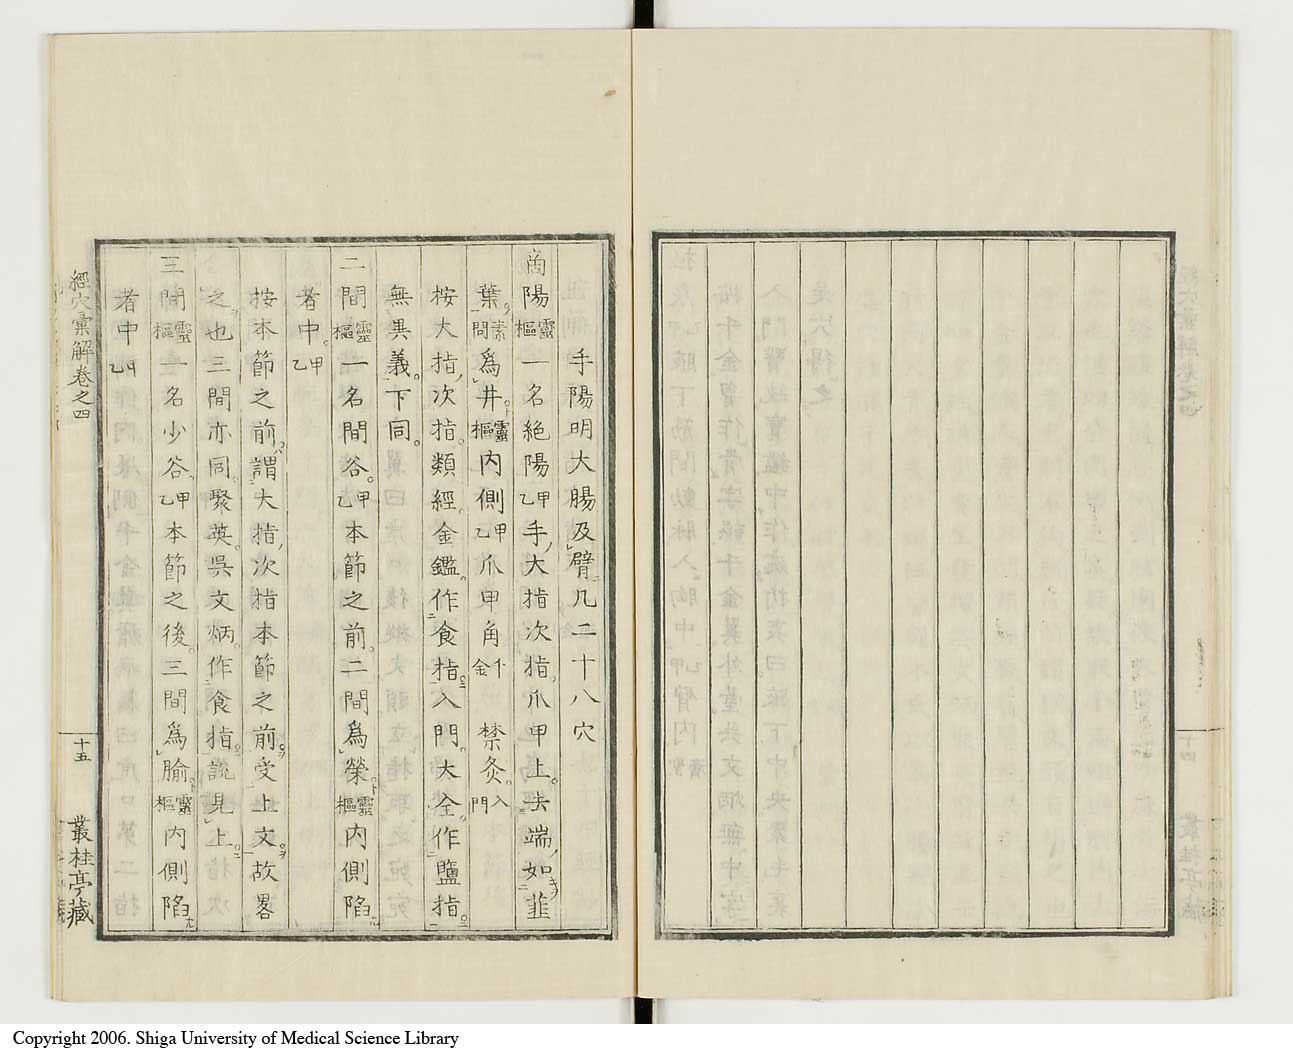 手陽明大腸及臂凡二十八穴
商陽靈樞一名絶陽甲乙手大指次指爪甲上去端如韮
葉素問爲井靈樞内側甲乙爪甲角千金禁灸入門
按大指次指類經金鑑作食指入門大全作鹽指
無異義下同
二間靈樞一名間谷甲乙本節之前二間爲滎靈樞内側陷
者中甲乙
按本節之前謂大指次指本節之前受上文故畧
之也三間亦同聚英呉文炳作食指説見上
三間靈樞一名少谷甲乙本節之後三間爲腧靈樞内側陷
者中甲乙
經穴彙解卷之四
十五
叢桂亭藏
Copyright 2006. Shiga University of Medical Science Library